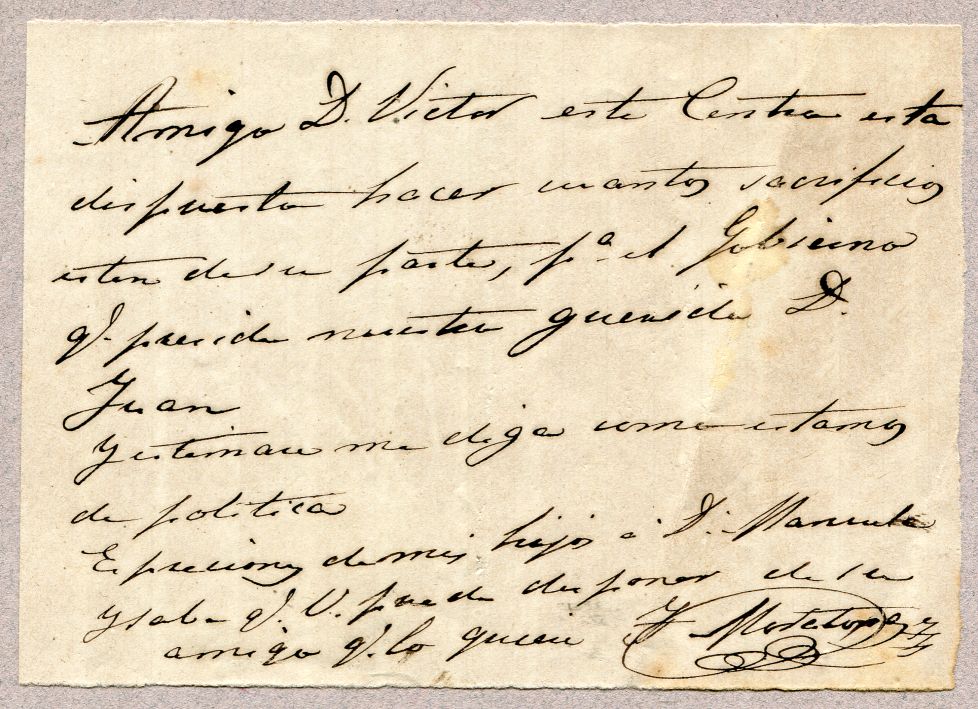 Amigo D. Victor este Centro esta
dispuesto hacer cuantos sacrificios
esten de su parte, pª. el Gobierno
q. preside nuestro querido D.
Juan
y estimaré me diga como estamos
de politica
Espreciones de mis hijos á Dª. Manuela
y sabe q. V. puede disponer de su
amigo q. lo quiere